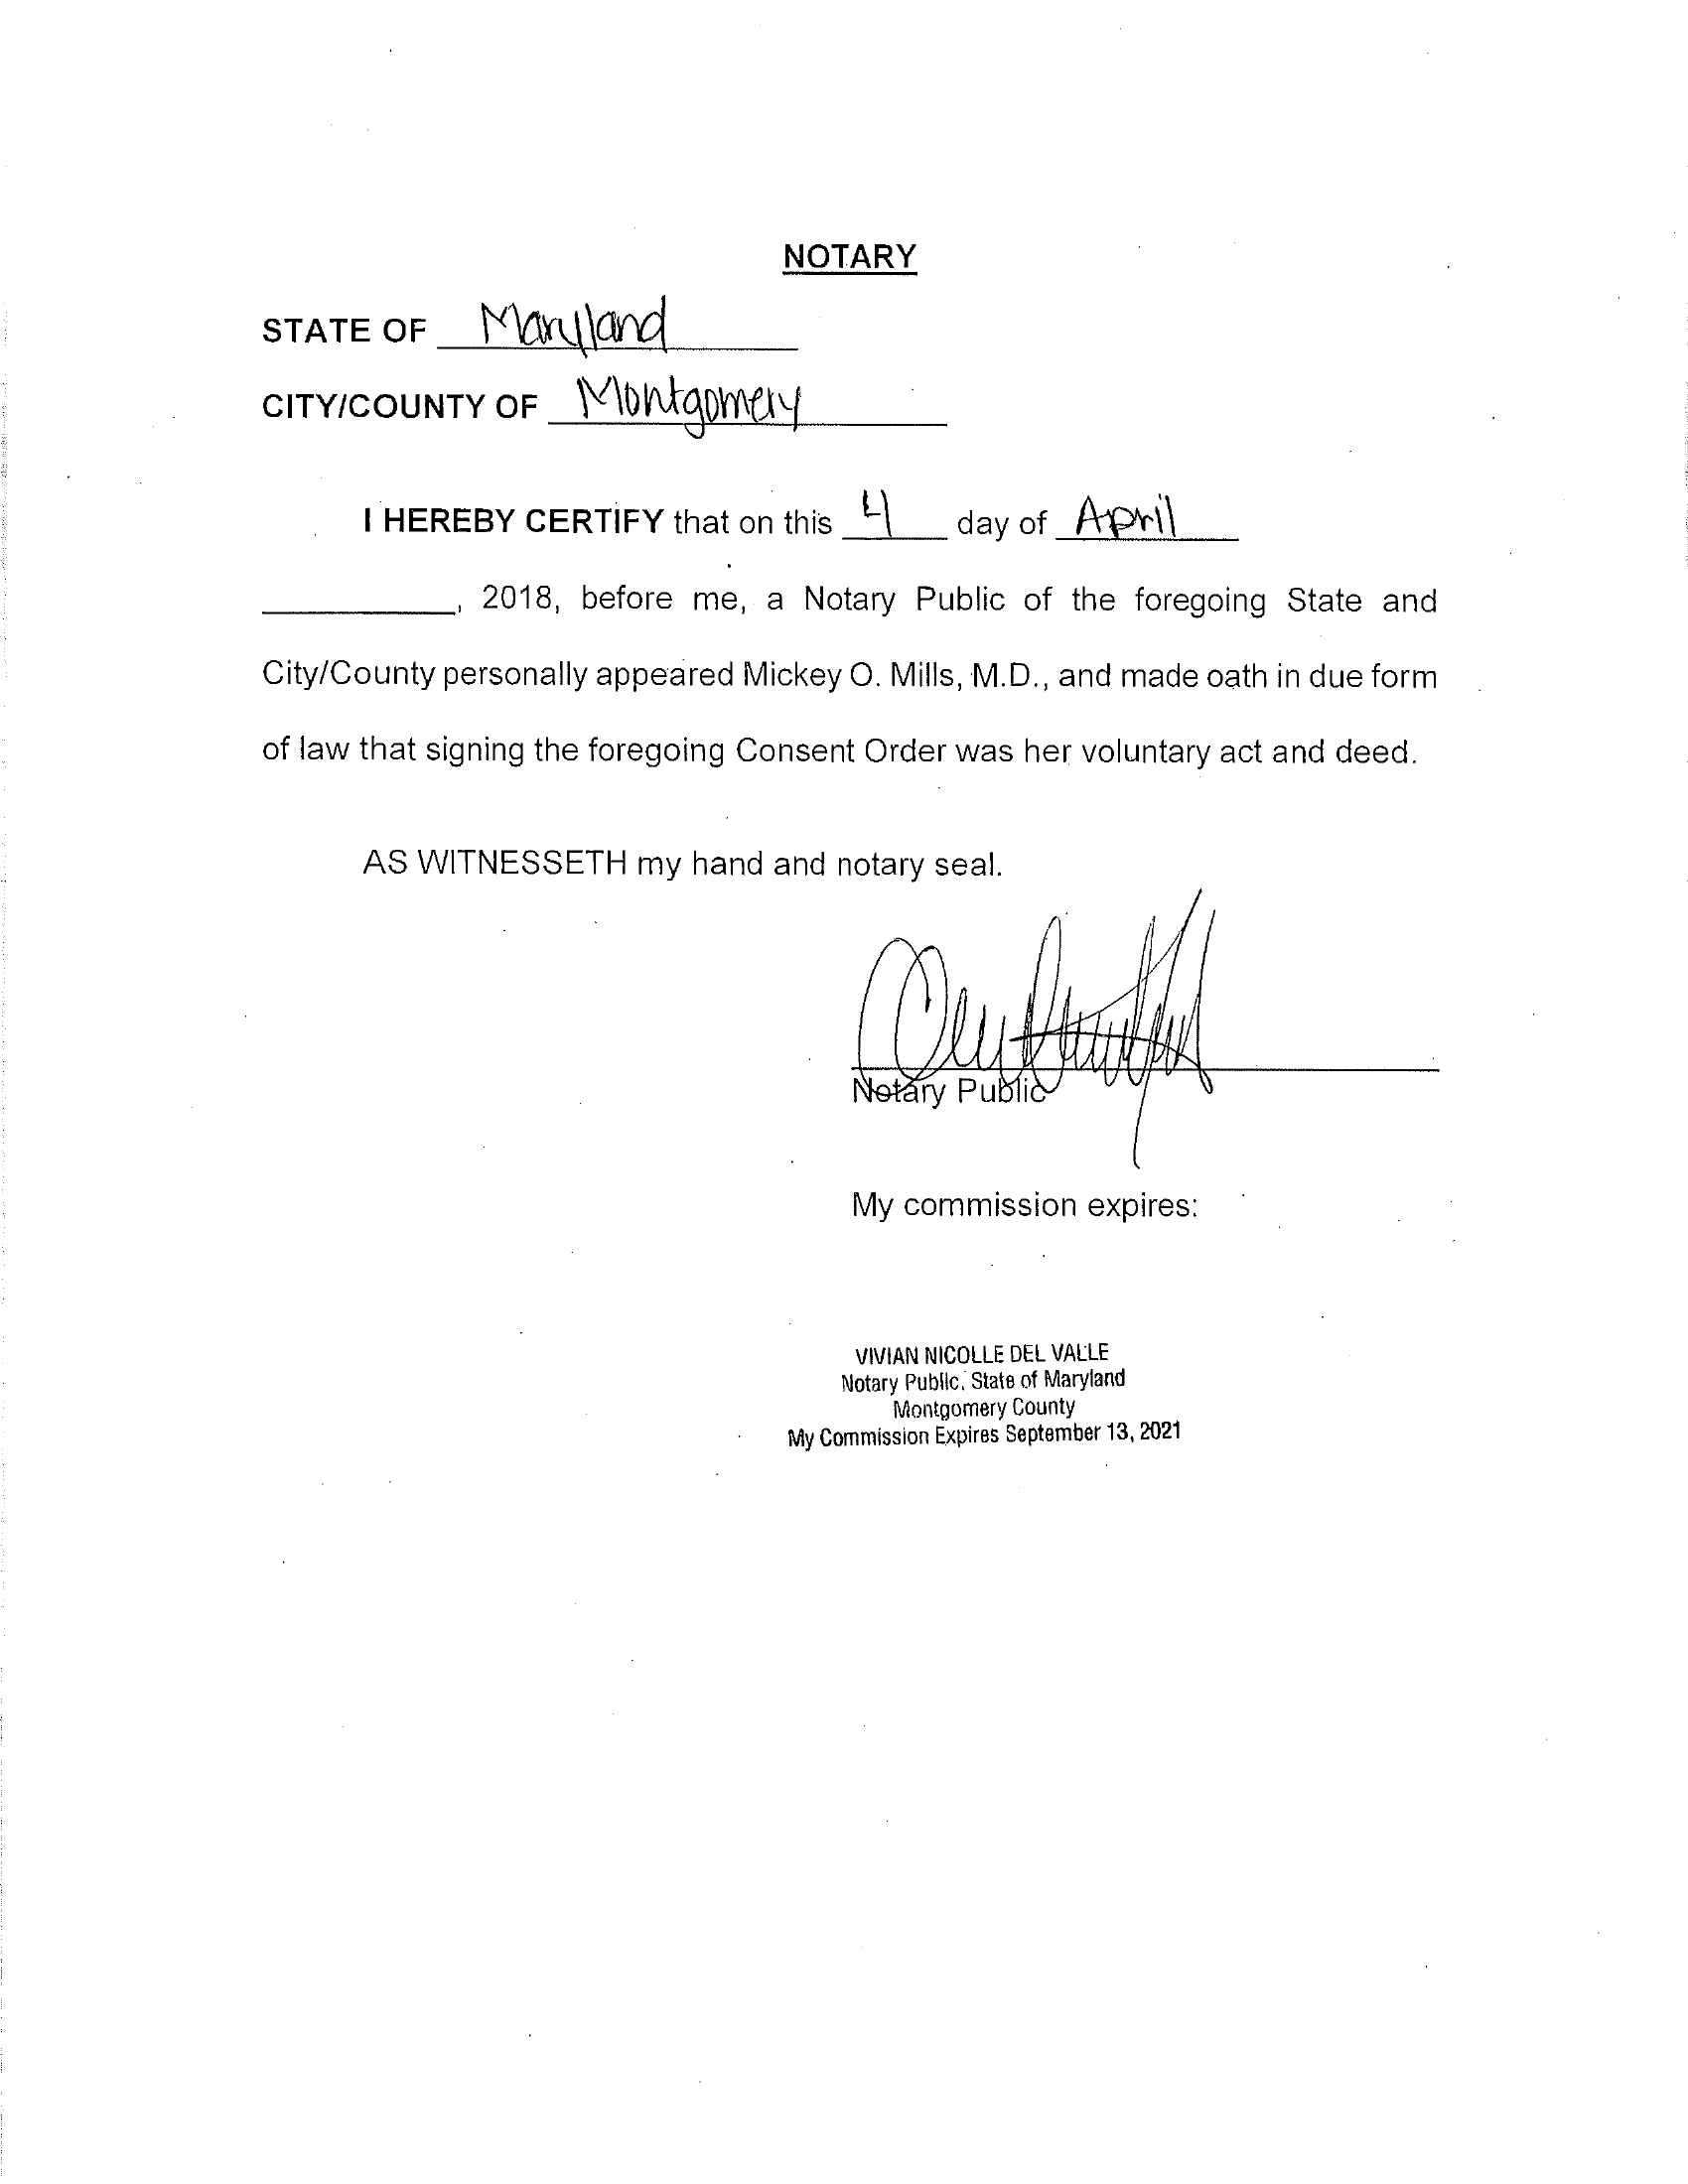 NOTARY
STATE OF Maryland
CITY/COUNTY OF Montgomery
I HEREBY CERTIFY that on this 4 day of April
__________, 2018, before me, a Notary Public of the foregoing State and
City/County personally appeared Mickey O. Mills, M.D., and made oath in due form
of law that signing the foregoing Consent Order was her voluntary act and deed.
AS WITNESSETH my hand and notary seal.
Notary Public
My commission expires:
VIVIAN NICOLLE DEL VALLE
Notary Public, State of Maryland
Montgomery County
My Commission Expires September 13, 2021